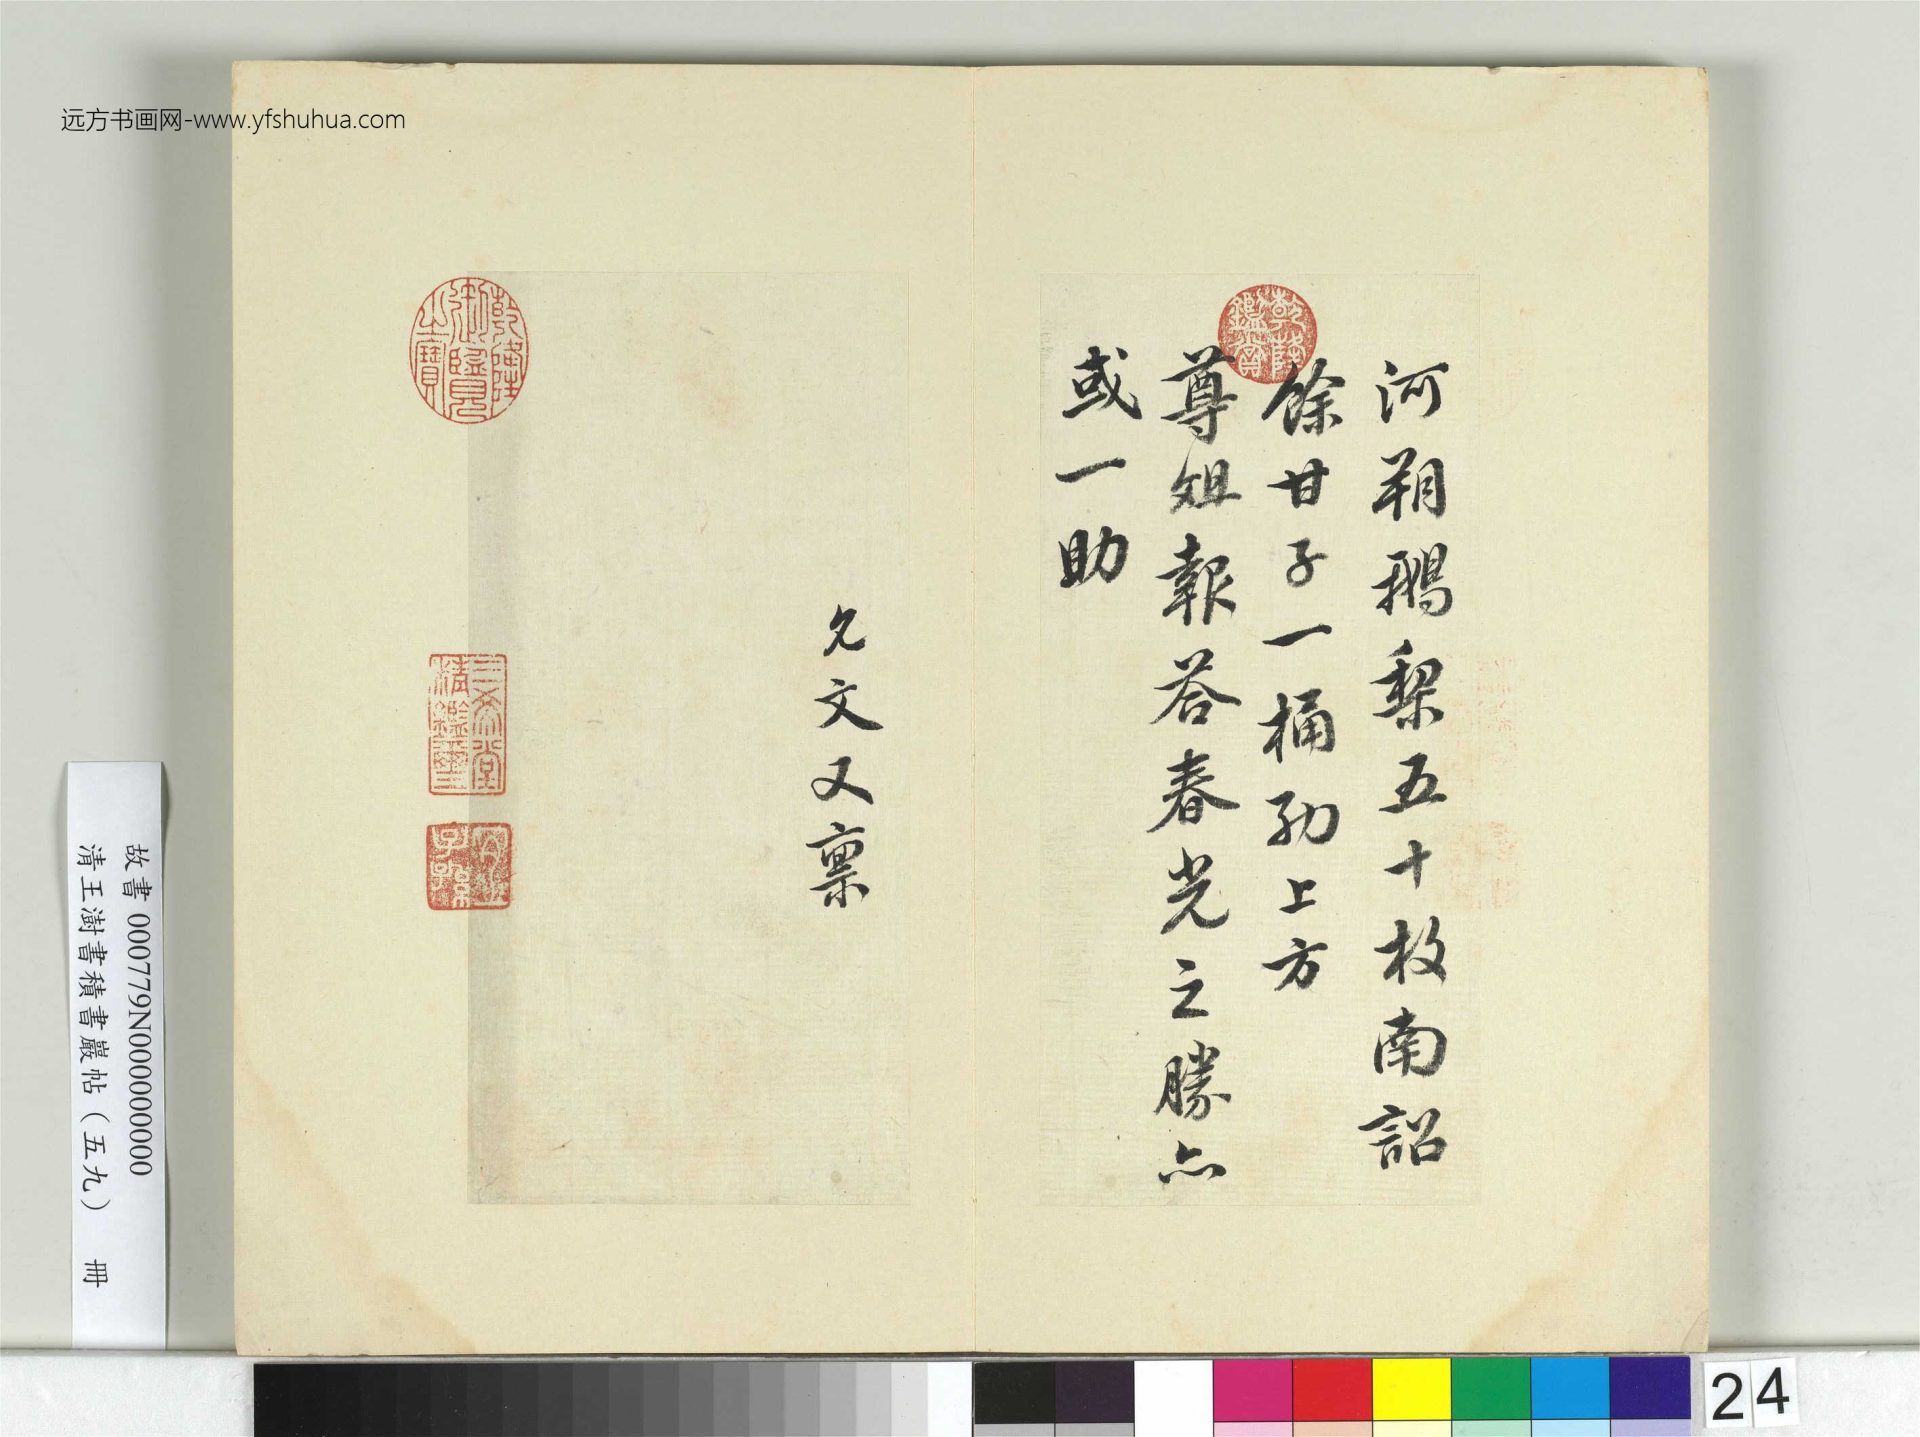 远方书画网-www.yfshuhua.com
河朔鵝梨五十枚南詔
餘甘子一桶納上方
尊俎報荅春光之勝亦
或一助
允文又稟
乾隆鑑賞
乾隆御覽之寶
三希堂精鑑璽
宜子孫
故書 000779N000000000
清王澍書積書巖帖（五九） 冊
24